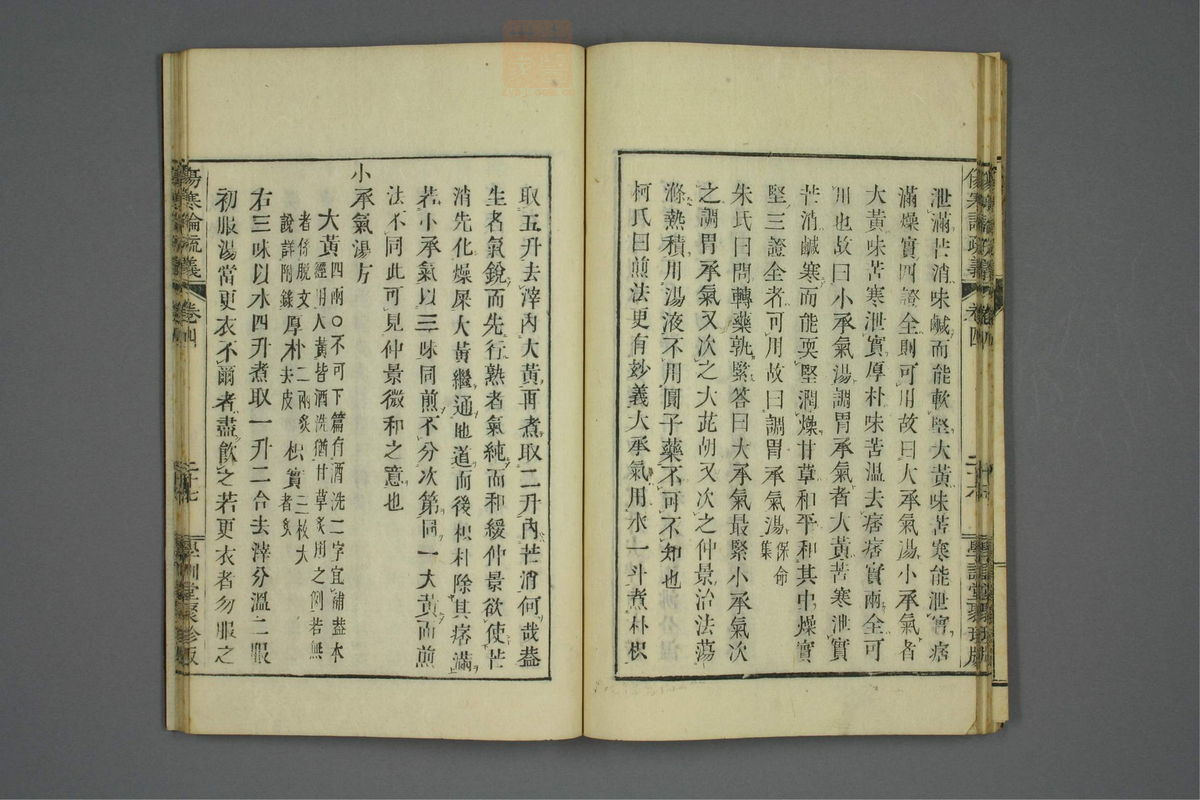 泄滿芒消味鹹而能軟堅大黃味苦寒能泄實痞
滿燥實四證全則可用故曰大承氣湯小承氣者
大黃味苦寒泄實厚朴味苦溫去痞痞實兩全可
用也故曰小承氣湯調胃承氣者大黃苦寒泄實
芒消鹹寒而能耎堅潤燥甘草和平和其中燥實
堅三證全者可用故曰調胃承氣湯保命
集
朱氏曰問轉藥孰緊答曰大承氣最緊小承氣次
之調胃承氣又次之大茈胡又次之仲景治法蕩
滌熱積用湯液不用圓子藥不可不知也
柯氏曰煎法更有妙義大承氣用水一斗煮朴枳
傷寒論疏義
卷四
學訓堂聚珍版
取五升去滓內大黃再煮取二升內芒消何哉蓋
生者氣銳而先行熟者氣純而和緩仲景欲使芒
消先化燥屎大黃繼通地道而後枳朴除其痞滿
若小承氣以三味同煎不分次第同一大黃而煎
法不同此可見仲景微和之意也
小承氣湯方
大黃四兩〇不可下篇有酒洗二字宜補蓋本
經用大黃皆酒洗猶甘草炙用之例若無
者係脫文
說詳附錄
厚朴二兩炙
去皮
枳實三枚大
者炙
右三味以水四升煮取一升二合去滓分溫二服
初服湯當更衣不爾者盡飲之若更衣者勿服之
傷寒論疏義
卷四
二十七
學訓堂聚珍版